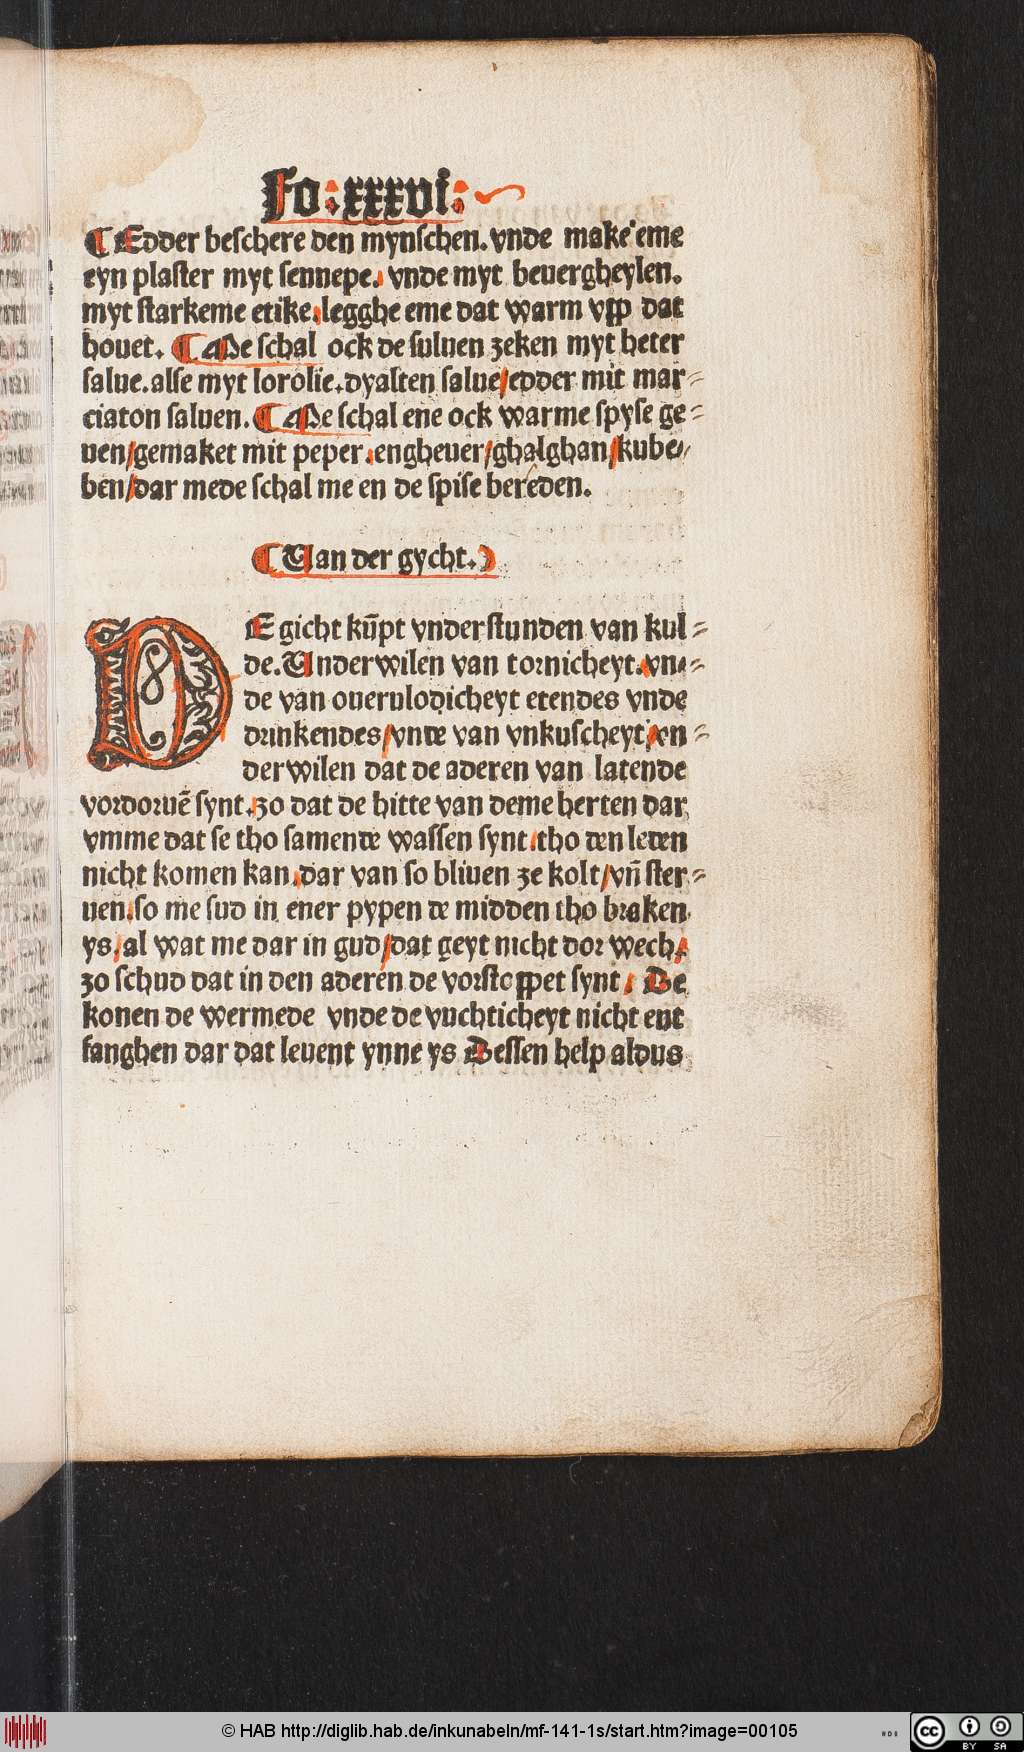 Fo:xxxvi:
¶ Edder beschere den mynschen. vnde make eme
eyn plaster myt sennepe. vnde myt beuergheylen.
myt starkeme etike. legghe eme dat warm vpp dat
houet. ¶ Me schal ock de suluen zeken myt heter
salue. alse myt lorolie. dyalten salue/ edder mit mar⸗
ciaton saluen. ¶ Me schal ene ock warme spyse ge⸗
uen/ gemaket mit peper. engheuer/ ghalghan/ kube⸗
ben/ dar mede schal me en de spise bereden.
¶ Uan der gycht.
DE gicht kūpt vnderstunden van kul⸗
de. Underwilen van tornicheyt. vn⸗
de van ouerulodicheyt etendes vnde
drinkendes/ vnde van vnkuscheyt/ vn⸗
derwilen dat de aderen van latende
vordoruē synt. zo dat de hitte van deme herten dar
vmme dat se tho samende wassen synt. tho den leden
nicht komen kan. dar van so bliuen ze kolt/ vn̄ ster⸗
uen. so me sud in ener pypen de midden tho braken
ys/ al wat me dar in gud/ dat geyt nicht dor wech.
zo schud dat in den aderen de vorstoppet synt/ De
konen de wermede vnde de vuchticheyt nicht ent
fanghen dar dat leuent ynne ys Dessen help aldus
© HAB http://diglib.hab.de/inkunabeln/mf-141-1s/start.htm?image=00105
cc BY SA